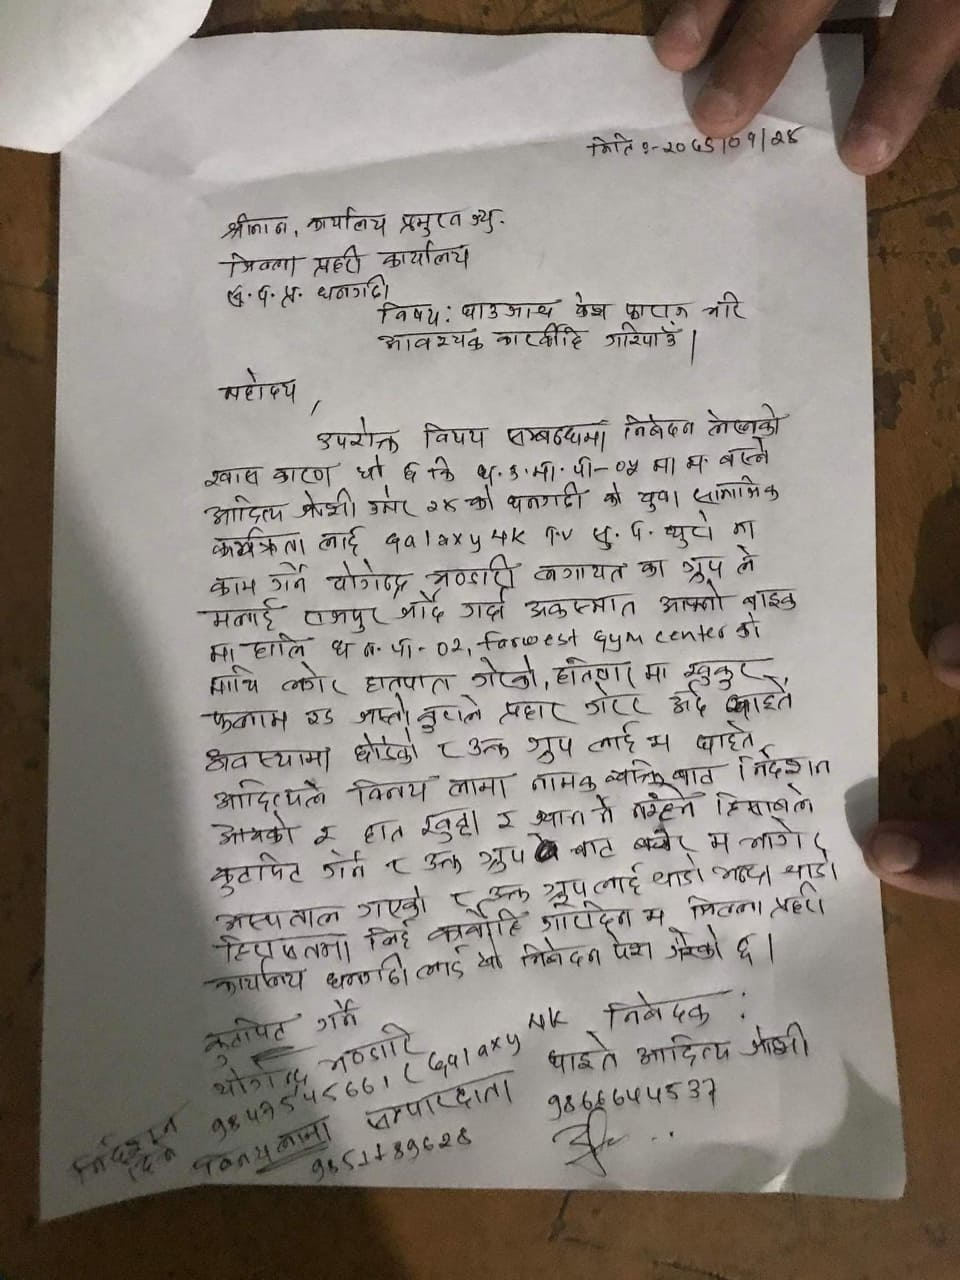 मिति :- २०७९/०१/२४
श्रीमान, कार्यालय प्रमुख ज्यु.
जिल्ला प्रहरी कार्यालय
सु.प.प्र. धनगढी
विषय: घाउजाच केश फाराम भरि
आवश्यक कारवाहि गरिपाउँ।
महोदय,
उपरोक्त विषय सम्बन्धमा निबेदन लेखेको
खास कारण यो छ कि ध.उ.म.पा-०४ मा म बस्ने
आदित्य जोशी उमेर २४ को धनगढी को युवा सामाजिक
कार्यक्रता लाई Galaxy 4K T.V सु.प. ब्युरो मा
काम गर्ने योगेन्द्र भण्डारी लगायत का ग्रुप ले
मलाई राजपुर जाँदै गर्दा अकस्मात आफ्नो बाइक
मा हालि ध.न.पा-02, farwest Gym center को
माथि लगेर हातपात गरेको, हतियार मा खुकुर,
फलाम रड जस्तो कुराले प्रहार गरेर अर्द घाइते
अवस्थामा छोडेको र उक्त ग्रुप लाई म घाइते
आदित्यले विनय लामा नामक व्यक्ति बाट निर्देशन
आएको र हात खुट्टा र ज्यान नै नरहने हिसाबले
कुटपिट गर्ने र उक्त ग्रुप बाट बचेर म भागेर
अस्पताल गएको र उक्त ग्रुपलाई थाडो भन्दा थाडो
हिरासतमा लिई कार्वाहि गरिदिन म जिल्ला प्रहरी
कार्यालय धनगढी लाई यो निबेदन पेश गरेको छु।
कुटपिट गर्ने
योगेन्द्र भण्डारि
9847545661 र Galaxy 4K
निबेदक :
घाइते आदित्य जोशी
9866644537
निर्देशन दिने
विनय लामा सम्पारदाता
9851189628